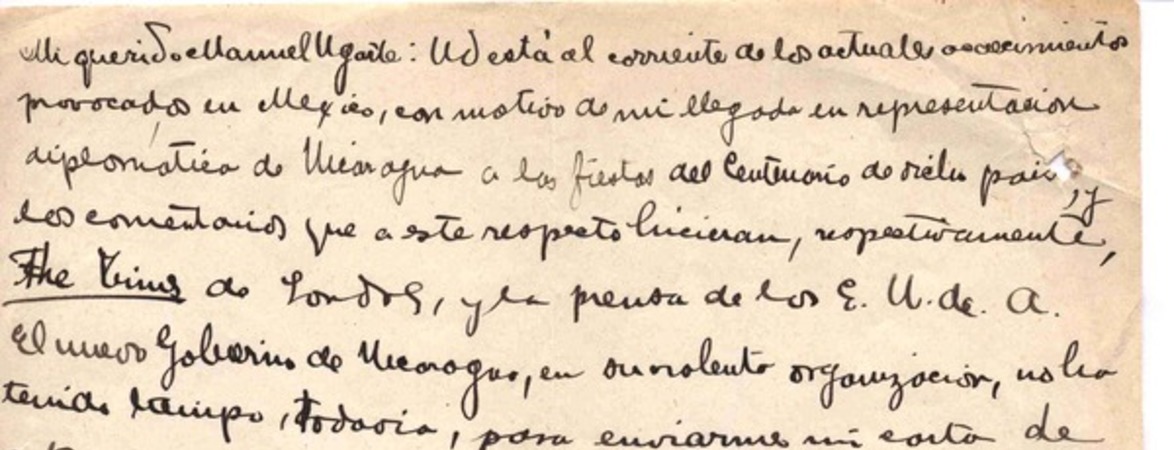 Mi querido Manuel Ugarte: Ud está al corriente de los actuales acaecimientos
provocados en Mexico, con motivo de mi llegada en representacion
diplomática de Nicaragua a las fiestas del Centenario de dicho pais, y
los comentarios que a este respecto hicieran, respectivamente,
The Times de Londres, y la prensa de los E. U. de. A.
El nuevo Gobierno de Nicaragua, en su violenta organización, no ha
tenido tiempo, todavia, para enviarme mi carta de